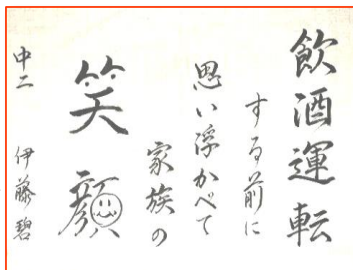 飲酒運転
する前に
思い浮かべて
家族の
笑顔
中二 伊藤碧